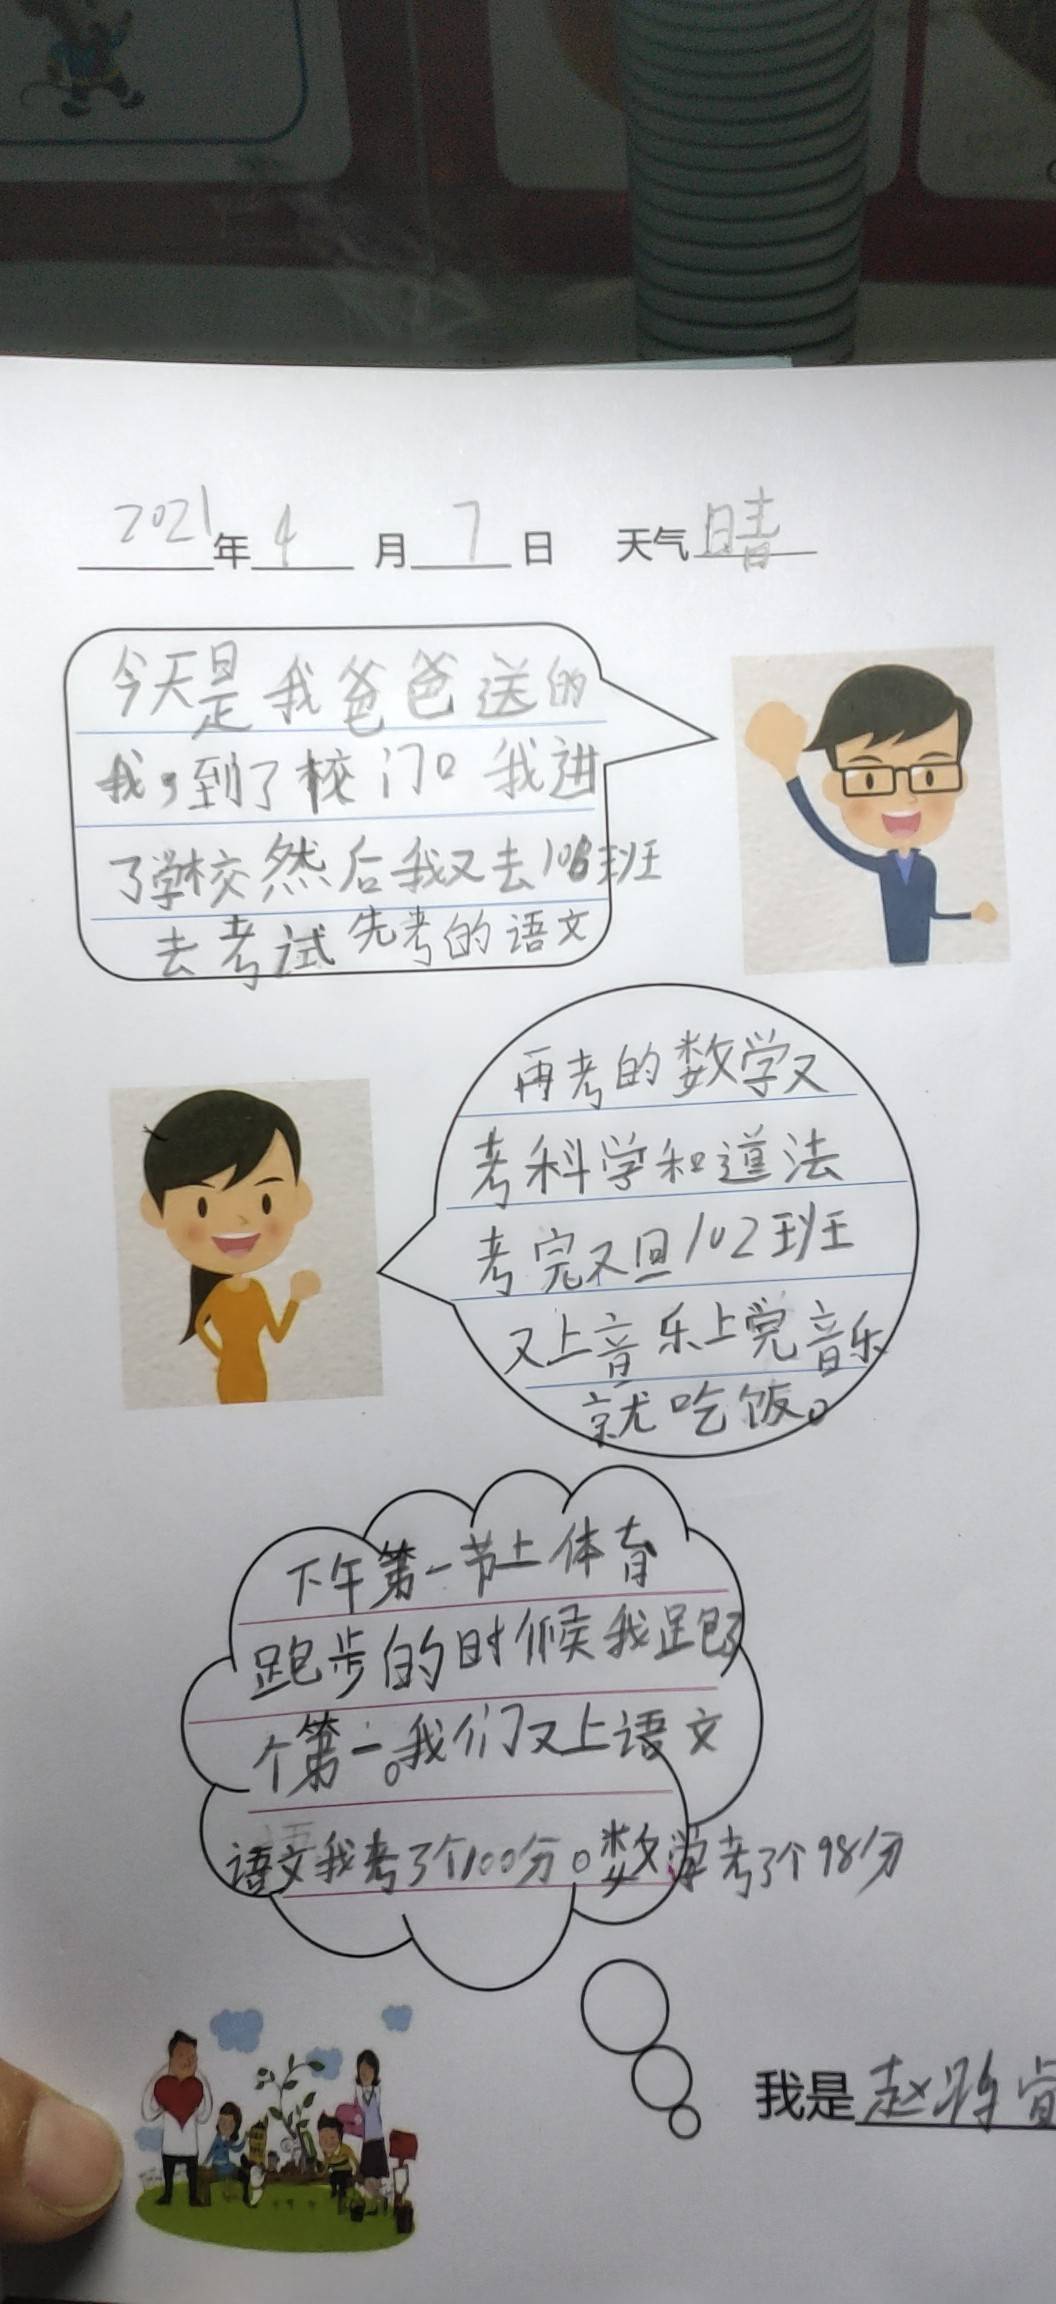 2021年4月7日 天气晴
今天是我爸爸送的
我，到了校门口我进
了学校然后我又去106班
去考试先考的语文
再考的数学又
考科学和道法
考完又回102班
又上音乐上完音乐
就吃饭。
下午第一节上体育
跑步的时候我跑了
个第一。我们又上语文
语文我考了个100分。数学考了个98分
我是赵